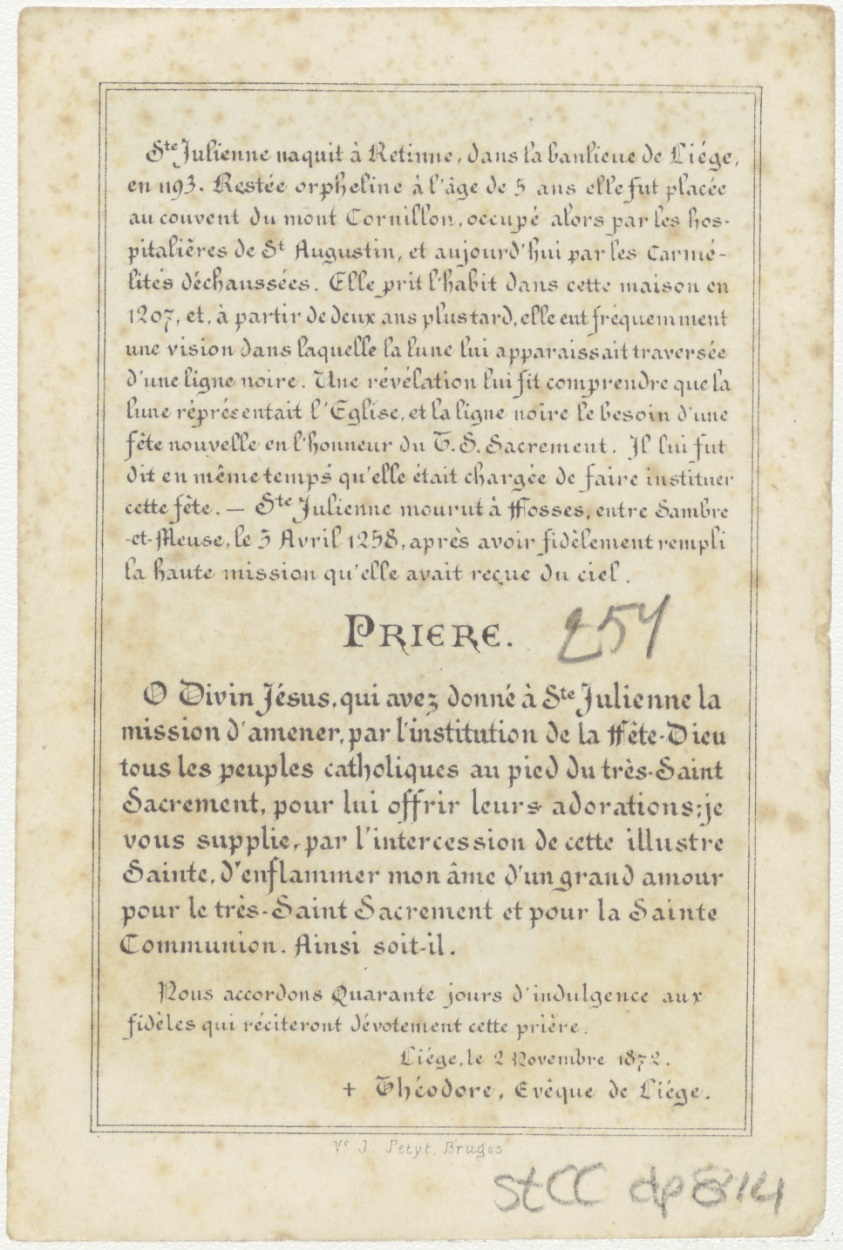 Ste Julienne naquit à Retinne, dans la banlieue de Liége,
en 1193. Restée orpheline à l'âge de 5 ans elle fut placée
au couvent du mont Cornillon, occupé alors par les hos-
pitalières de St Augustin, et aujourd'hui par les Carmé-
lites déchaussées. Elle prit l'habit dans cette maison en
1207, et, à partir de deux ans plus tard, elle eut fréquemment
une vision dans laquelle la lune lui apparaissait traversée
d'une ligne noire. Une révélation lui fit comprendre que la
lune réprésentait l'Eglise, et la ligne noire le besoin d'une
fête nouvelle en l'honneur du T.S. Sacrement. Il lui fut
dit en même temps qu'elle était chargée de faire instituer
cette fête. — Ste Julienne mourut à Fosses, entre Sambre
-et-Meuse, le 5 Avril 1258, après avoir fidèlement rempli
la haute mission qu'elle avait reçue du ciel.
PRIERE. 257
O Divin Jésus, qui avez donné à Ste Julienne la
mission d'amener, par l'institution de la Fête-Dieu
tous les peuples catholiques au pied du très-Saint
Sacrement, pour lui offrir leurs adorations; je
vous supplie, par l'intercession de cette illustre
Sainte, d'enflammer mon âme d'un grand amour
pour le très-Saint Sacrement et pour la Sainte
Communion. Ainsi soit-il.
Nous accordons Quarante jours d'indulgence aux
fidèles qui réciteront dévotement cette prière.
Liége, le 2 Novembre 1872.
+ Théodore, Evêque de Liége.
Ve J. Petyt. Bruges
StCC dp 814